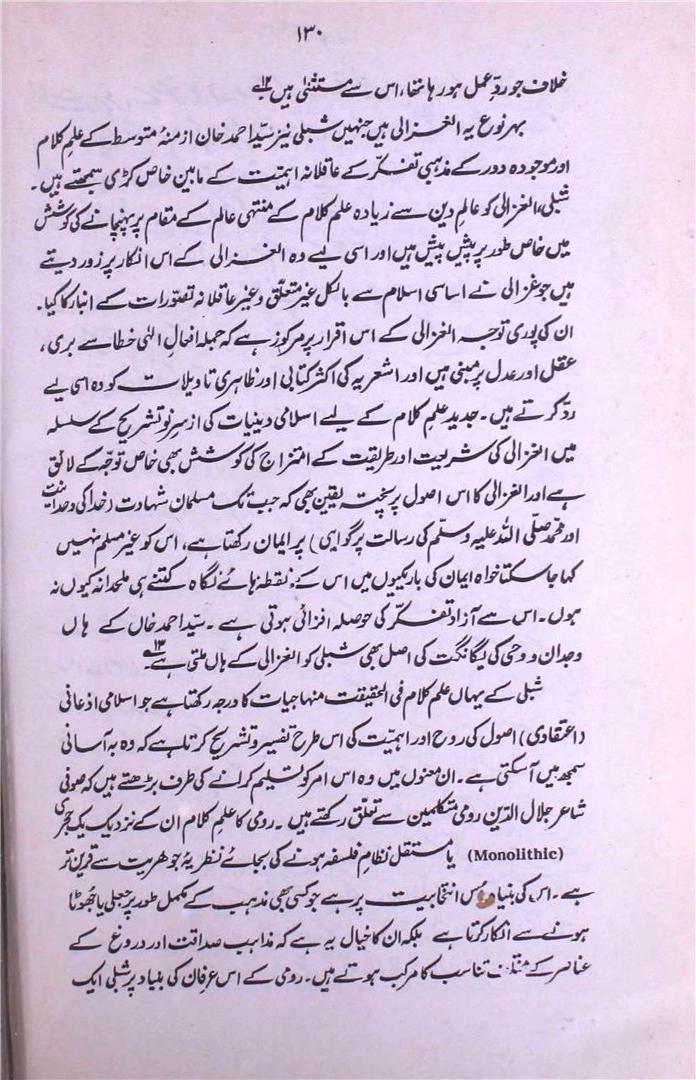 ۱۳۰
خلاف جو ردِّ عمل ہو رہا تھا، اس سے مستثنیٰ ہیں ۱۲
بہر نوع یہ الغزالی ہیں جنہیں شبلی نیز سیّد احمد خان ازمنۂ متوسط کے علمِ کلام
اور موجودہ دور کے مذہبی تفکّر کے عاقلانہ اہمیّت کے مابین خاص کڑی سمجھتے ہیں۔
شبلی، الغزالی کو عالمِ دین سے زیادہ علم کلام کے منتہی عالم کے مقام پر پہنچانے کی کوشش
میں خاص طور پر پیش پیش ہیں اور اسی لیے وہ الغزالی کے اس انکار پر زور دیتے
ہیں جو غزالی نے اساسی اسلام سے بالکل غیر متعلّق و غیر عاقلانہ تصوّرات کے انبار کا کیا۔
ان کی پوری توجہ الغزالی کے اس اقرار پر مرکوز ہے کہ جملہ افعالِ الٰہی خطا سے بری،
عقل اور عدل پر مبنی ہیں اور اشعریہ کی اکثر کتابی اور ظاہری تاویلات کو وہ اسی لیے
ردّ کرتے ہیں۔ جدید علمِ کلام کے لیے اسلامی دینیات کی از سرِ نو تشریح کے سلسلہ
میں الغزالی کی شریعت اور طریقت کے امتزاج کی کوشش بھی خاص توجّہ کے لائق
ہے اور الغزالی کا اس اصول پر پختہ یقین بھی کہ جب تک مسلمان شہادت (خدا کی وحدانیت
اور محمد صلّی اللہ علیہ وسلّم کی رسالت پر گواہی) پر ایمان رکھتا ہے، اس کو غیر مسلم نہیں
کہا جا سکتا خواہ ایمان کی باریکیوں میں اس کے نقطہ ہائے نگاہ کتنے ہی ملحدانہ کیوں نہ
ہوں۔ اس سے آزاد تفکّر کی حوصلہ افزائی ہوتی ہے۔ سیّد احمد خاں کے ہاں
وجدان و وحی کی یگانگت کی اصل بھی شبلی کو الغزالی کے ہاں ملتی ہے ۱۳
شبلی کے یہاں علم کلام فی الحقیقت منہاجیات کا درجہ رکھتا ہے جو اسلامی اذعانی
(اعتقادی) اصول کی روح اور اہمیّت کی اس طرح تفسیر و تشریح کرتا ہے کہ وہ بہ آسانی
سمجھ میں آ سکتی ہے۔ ان معنوں میں وہ اس امر کو تسلیم کرانے کی طرف بڑھتے ہیں کہ صوفی
شاعر جلال الدّین رومی متکلمین سے تعلق رکھتے ہیں۔ رومی کا علمِ کلام ان کے نزدیک یک حجری
(Monolithic) یا مستقل نظامِ فلسفہ ہونے کی بجائے نظریۂ جوہریت سے قریں تر
ہے۔ اس کی بنیاد اس انتخابیت پر ہے جو کسی بھی مذہب کے مکمل طور پر جعلی یا جُھوٹا
ہونے سے انکار کرتا ہے بلکہ ان کا خیال یہ ہے کہ مذاہب صداقت اور دروغ کے
عناصر کے تناسب کا مرکب ہوتے ہیں۔ رومی کے اس عرفان کی بنیاد پر شبلی ایک